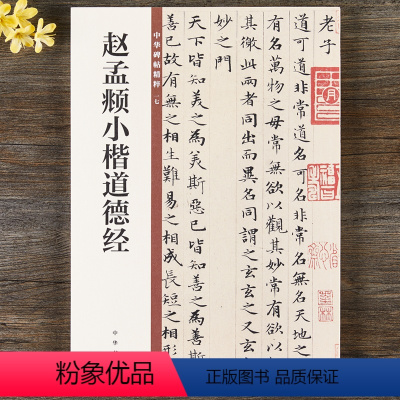 赵孟𫖯小楷道德经
中华碑帖精粹
中华
老子
道可道非常道名可名非常名無名天地之
有名萬物之母常無欲以觀其妙常有欲以
其徼此兩者同出而異名同謂之玄玄之又玄
妙之門
天下皆知美之為美斯惡已皆知善之為善斯
善已故有無之相生難易之相成長短之相形
粉象优品